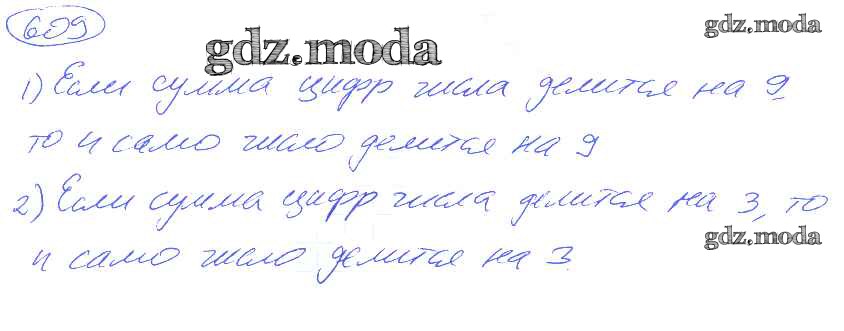 609
gdz.moda
gdz.moda
1) Если сумма цифр числа делится на 9,
то и само число делится на 9
2) Если сумма цифр числа делится на 3, то
и само число делится на 3.
gdz.moda